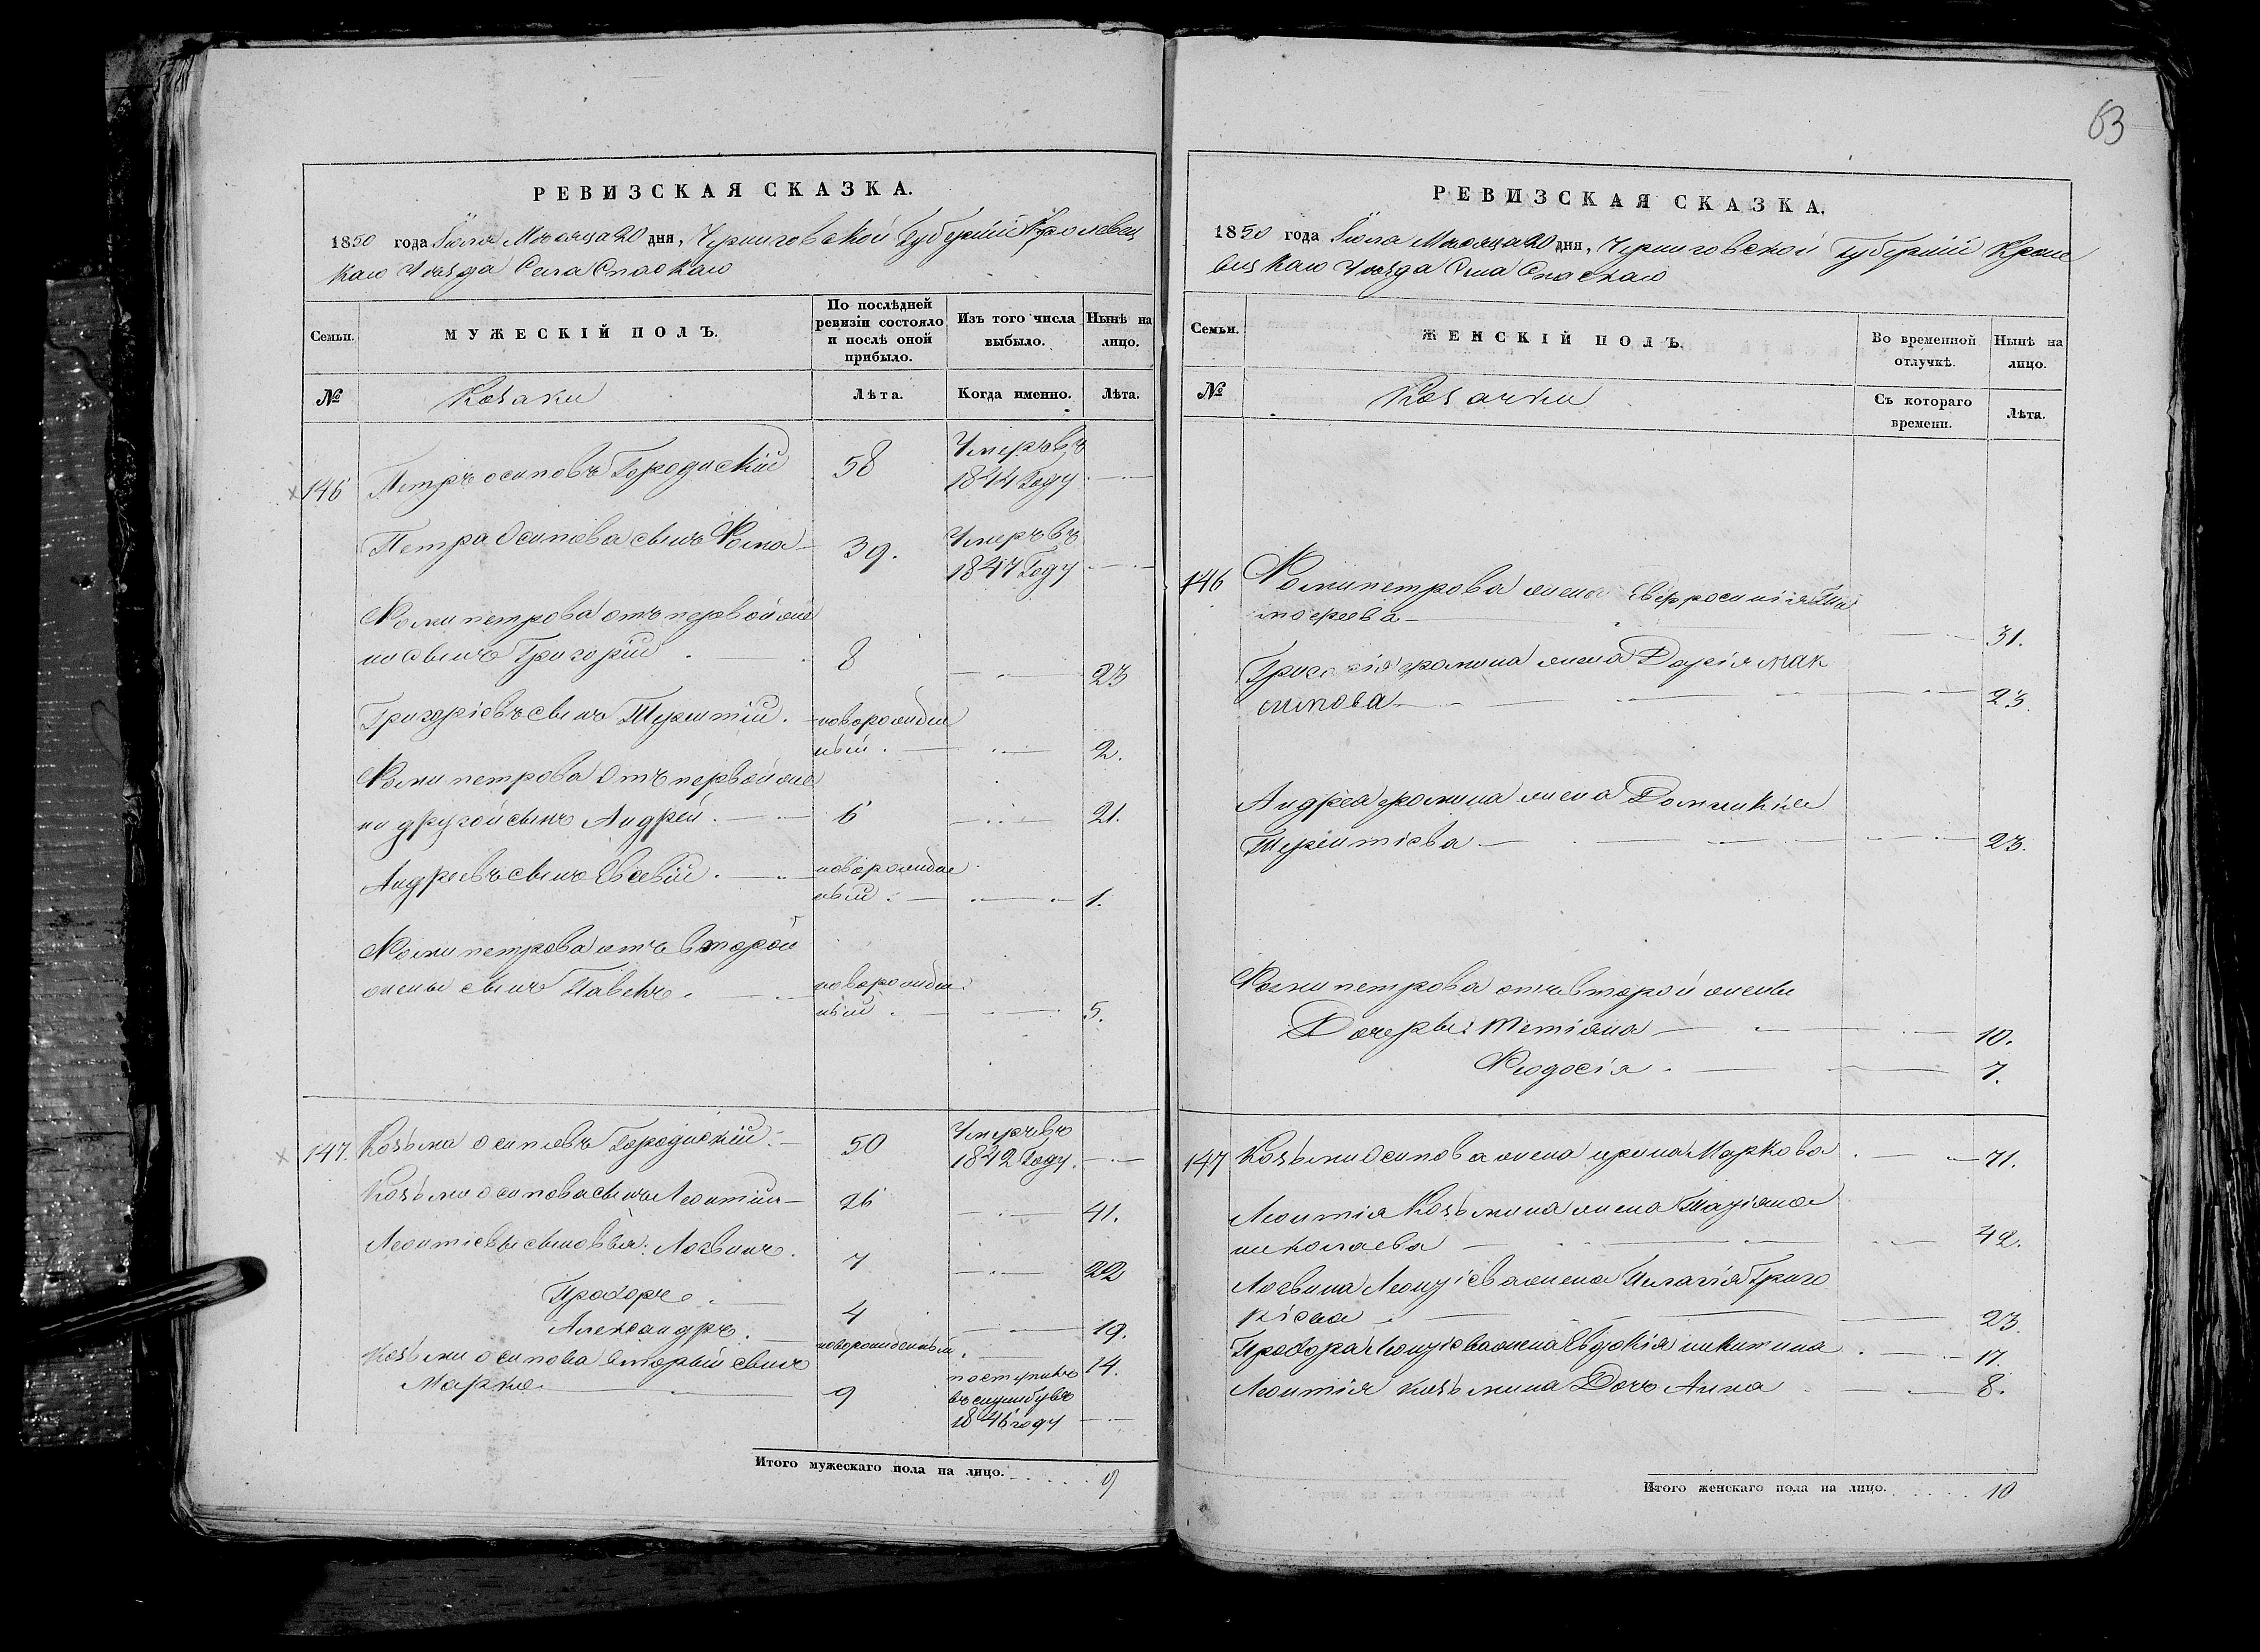 РЕВИЗСКАЯ СКАЗКА.
1850 года Іюля Месяца 20 дня, Черниговской Губерніи Кролевец
каго Уезда Села Спаскаго
Семьи.
МУЖЕСКІЙ ПОЛЪ.
По послѣдней
ревизіи состояло
и послѣ оной
прибыло.
Изъ того числа
выбыло.
Нынѣ на
лицо.
№
Козаки
Лѣта.
Когда именно.
Лѣта.
146 Петръ осиповъ Городискій 58 Умеръ въ
1844 Году
Петра Осипова сынъ Фома 39. Умеръ въ
1847 Году
Фомы петрова отъ первой же
ны сынъ Григорій 8 23
Григоріевъ сынъ Терентій новорожден
ный 2.
Фомы петрова отъ первой же
ны другой сынъ Андрей 6 21.
Андреевъ сынъ Евсевій новорожден
ный 1.
Фомы петрова отъ второй
жены сынъ Павелъ новорожден
ный 5.
147. Козьма осиповъ Городискій 50 Умеръ въ
1842 Году.
Козьмы осипова сынъ Леонтій 26 41.
Леонтіевы сыновья: Логвинъ 7 22
Прохоръ 4 19.
Александръ новорожденный 14.
Козьмы осипова вторый сынъ
Марко 9 поступилъ
въ службу въ
1846 году
Итого мужескаго пола на лицо. 9
63
РЕВИЗСКАЯ СКАЗКА.
1850 года Іюля Месяца 20 дня, Черниговской Губерніи Кроле
вецкаго Уезда Села Спаскаго
Семьи.
ЖЕНСКІЙ ПОЛЪ.
Во временной
отлучкѣ.
Нынѣ на
лицо.
№
Козачки
Съ котораго
времени.
Лѣта.
146 Фомы петрова жена Евфросинія Ти
мофеева 31.
Григорія фомина жена Дарія мак
симова 23.
Андрея фомина жена Домникія
Терентіева 23.
Фомы петрова отъ второй жены
Дочеры: Тетіяна 10.
Феодосія 7.
147 Козьмы Осипова жена ирина Маркова 71.
Леонтія Козьмина жена
николаева 42.
Логвина Леонтіева жена Пелагія Григо
ріева 23
Прохора Леонтіева жена Евдокія никитина 17.
Леонтія козьмина Дочь Анна 8.
Итого женскаго пола на лицо. 10